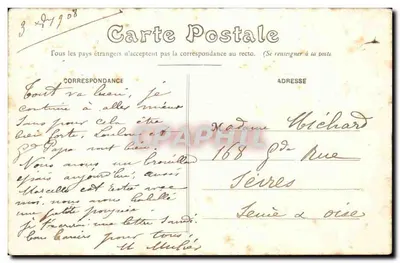 3 1908
Carte Postale
Tous les pays étrangers n'acceptent pas la correspondance au recto. (Se renseigner à la poste
CORRESPONDANCE
ADRESSE
Tout va bien, je
continue à aller mieux
sans pour cela être
bien forte, Loulou
Papa vont bien
Nous avons un brouillard
épais aujourd'hui, aussi
Marcelle est restée avec
moi, nous avons habillé
une petite poupée
je t'écrirai une lettre
bons baisers pour tous.
M
Madame Michard
168 Gde Rue
Sèvres
Seine & Oise